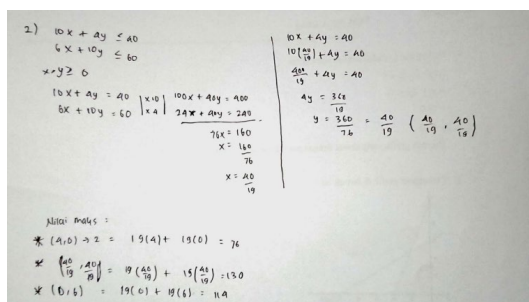 2) 10x + 4y ≤ 40
6x + 10y ≤ 60
x,y ≥ 0
10x + 4y = 40 | x10 | 100x + 40y = 400
6x + 10y = 60 | x4 | 24x + 40y = 240
76x = 160
x = 160/76
x = 40/19
10x + 4y = 40
10(40/19) + 4y = 40
400/19 + 4y = 40
4y = 360/19
y = 360/76 = 40/19 (40/19, 40/19)
Nilai maks :
* (4,0) → z = 19(4) + 19(0) = 76
* (40/19, 40/19) = 19(40/19) + 19(40/19) = 130
* (0,6) = 19(0) + 19(6) = 114